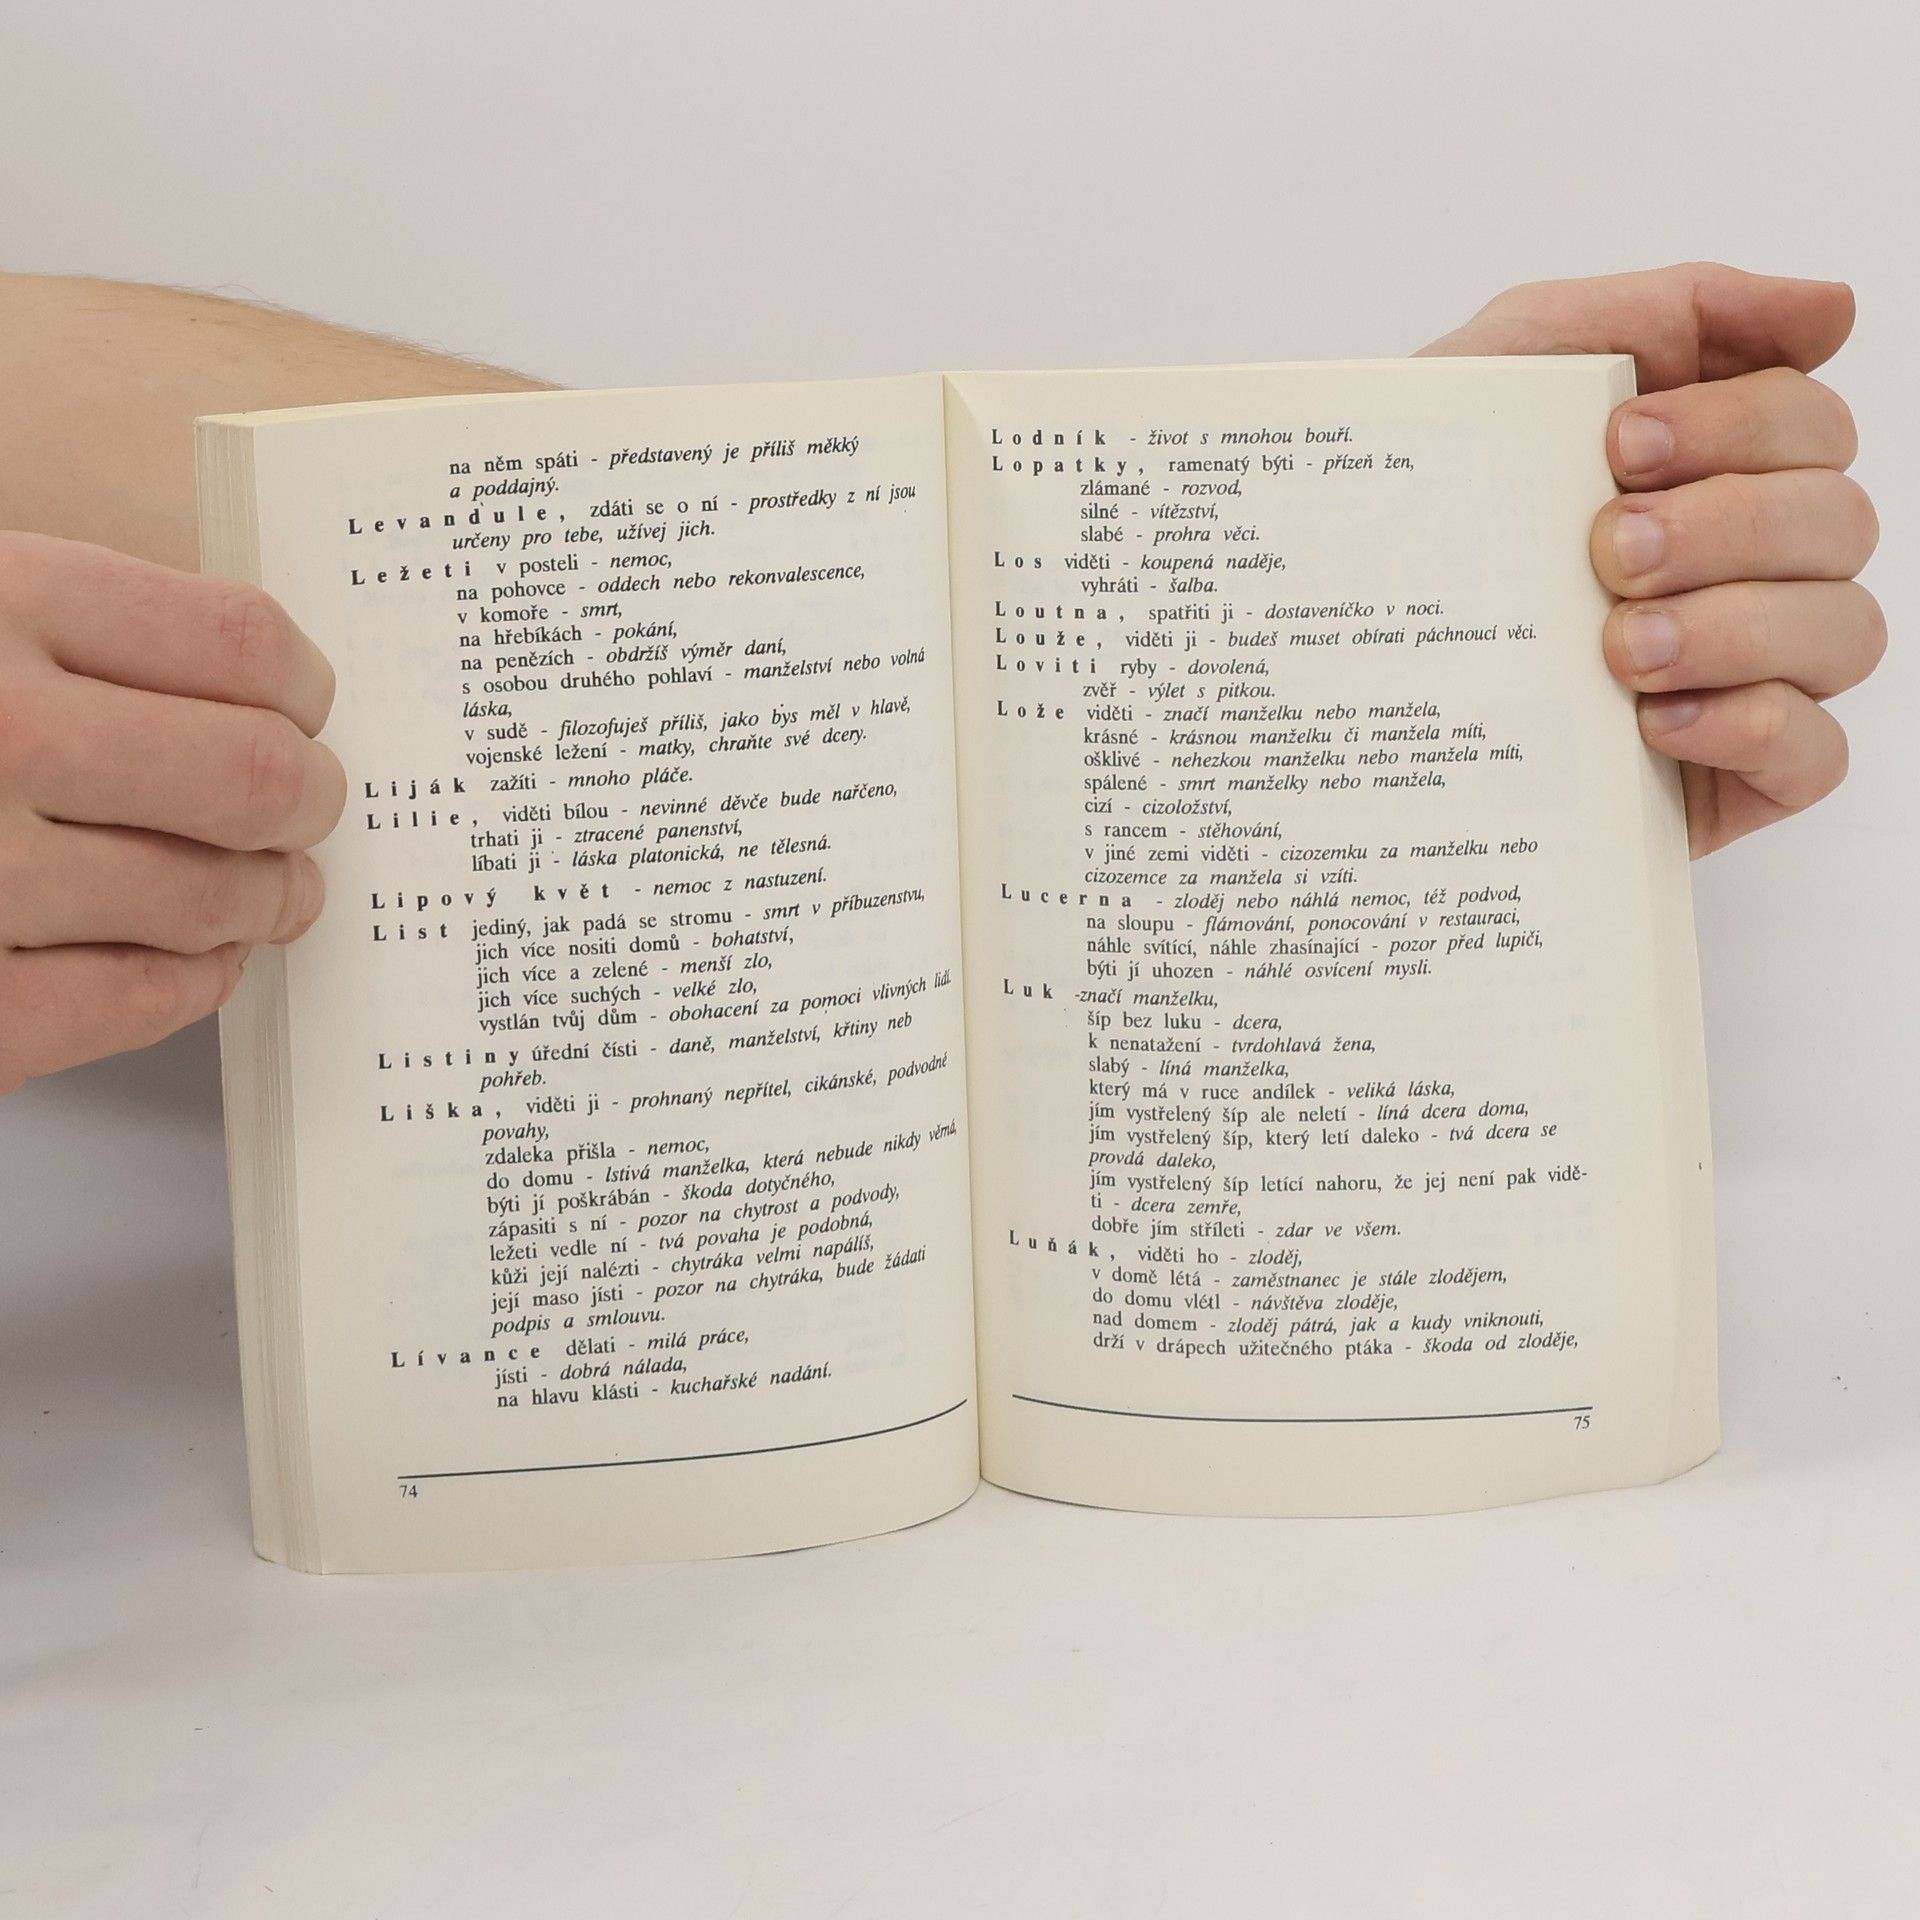 na něm spáti - představený je příliš měkký
a poddajný.
Levandule, zdáti se o ní - prostředky z ní jsou
určeny pro tebe, užívej jich.
Ležeti v posteli - nemoc,
na pohovce - oddech nebo rekonvalescence,
v komoře - smrt,
na hřebíkách - pokání,
na penězích - obdržíš výměr daní,
s osobou druhého pohlaví - manželství nebo volná
láska,
v sudě - filozofuješ příliš, jako bys měl v hlavě,
vojenské ležení - matky, chraňte své dcery.
Liják zažíti - mnoho pláče.
Lilie, viděti bílou - nevinné děvče bude nařčeno,
trhati ji - ztracené panenství,
líbati ji - láska platonická, ne tělesná.
Lipový květ - nemoc z nastuzení.
List jediný, jak padá se stromu - smrt v příbuzenstvu,
jich více nositi domů - bohatství,
jich více a zelené - menší zlo,
jich více suchých - velké zlo,
vystlán tvůj dům - obohacení za pomoci vlivných lidí.
Listiny úřední čísti - daně, manželství, křtiny neb
pohřeb.
Liška, viděti ji - prohnaný nepřítel, cikánské, podvodné
povahy,
zdaleka přišla - nemoc,
do domu - lstivá manželka, která nebude nikdy věrná,
býti jí poškrábán - škoda dotyčného,
zápasiti s ní - pozor na chytrost a podvody,
ležeti vedle ní - tvá povaha je podobná,
kůži její nalézti - chytráka velmi napálíš,
její maso jísti - pozor na chytráka, bude žádati
podpis a smlouvu.
Lívance dělati - milá práce,
jísti - dobrá nálada,
na hlavu klásti - kuchařské nadání.
74
Lodník - život s mnohou bouří.
Lopatky, ramenatý býti - přízeň žen,
zlámané - rozvod,
silné - vítězství,
slabé - prohra věci.
Los viděti - koupená naděje,
vyhráti - šalba.
Loutna, spatřiti ji - dostaveníčko v noci.
Louže, viděti ji - budeš muset obírati páchnoucí věci.
Loviti ryby - dovolená,
zvěř - výlet s pitkou.
Lože viděti - značí manželku nebo manžela,
krásné - krásnou manželku či manžela míti,
ošklivé - nehezkou manželku nebo manžela míti,
spálené - smrt manželky nebo manžela,
cizí - cizoložství,
s rancem - stěhování,
v jiné zemi viděti - cizozemku za manželku nebo
cizozemce za manžela si vzíti.
Lucerna - zloděj nebo náhlá nemoc, též podvod,
na sloupu - flámování, ponocování v restauraci,
náhle svítící, náhle zhasínající - pozor před lupiči,
býti jí uhozen - náhlé osvícení mysli.
Luk -značí manželku,
šíp bez luku - dcera,
k nenatažení - tvrdohlavá žena,
slabý - líná manželka,
který má v ruce andílek - veliká láska,
jím vystřelený šíp ale neletí - líná dcera doma,
jím vystřelený šíp, který letí daleko - tvá dcera se
provdá daleko,
jím vystřelený šíp letící nahoru, že jej není pak vidě-
ti - dcera zemře,
dobře jím stříleti - zdar ve všem.
Luňák, viděti ho - zloděj,
v domě létá - zaměstnanec je stále zlodějem,
do domu vlétl - návštěva zloděje,
nad domem - zloděj pátrá, jak a kudy vniknouti,
drží v drápech užitečného ptáka - škoda od zloděje,
75